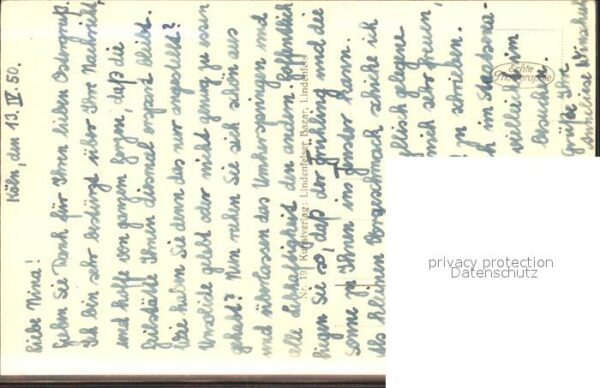 Köln, am 13. IV. 50.
Liebe Nina!
Haben Sie Dank für Ihren lieben Ostergruß.
Ich bin sehr bestürzt über Ihre Nachricht,
und hoffe von ganzem Herzen, daß die
Gelbsucht Ihnen diesmal erspart bleibt.
Wie haben Sie denn das nur angestellt?
Unsolide gelebt oder nicht genug zu essen
gehabt? Nun ruhen Sie sich schön aus
und überlassen das Umherspringen und
alle Lebhaftigkeit den andern. Hoffentlich
liegen Sie so, daß der Frühling und die
Sonne zu Ihnen ins Fenster kann.
Als kleinen Vorgeschmack schicke ich
fleisch gelegene
mich sehr freuen,
zu schreiben.
ch in Staatsexa-
vielleicht
besuchen.
Grüße Ihre
Nr. 191 Kunstverlag: Lindenfelser Bazar, Lindenfels
Echte Photographie
privacy protection
Datenschutz